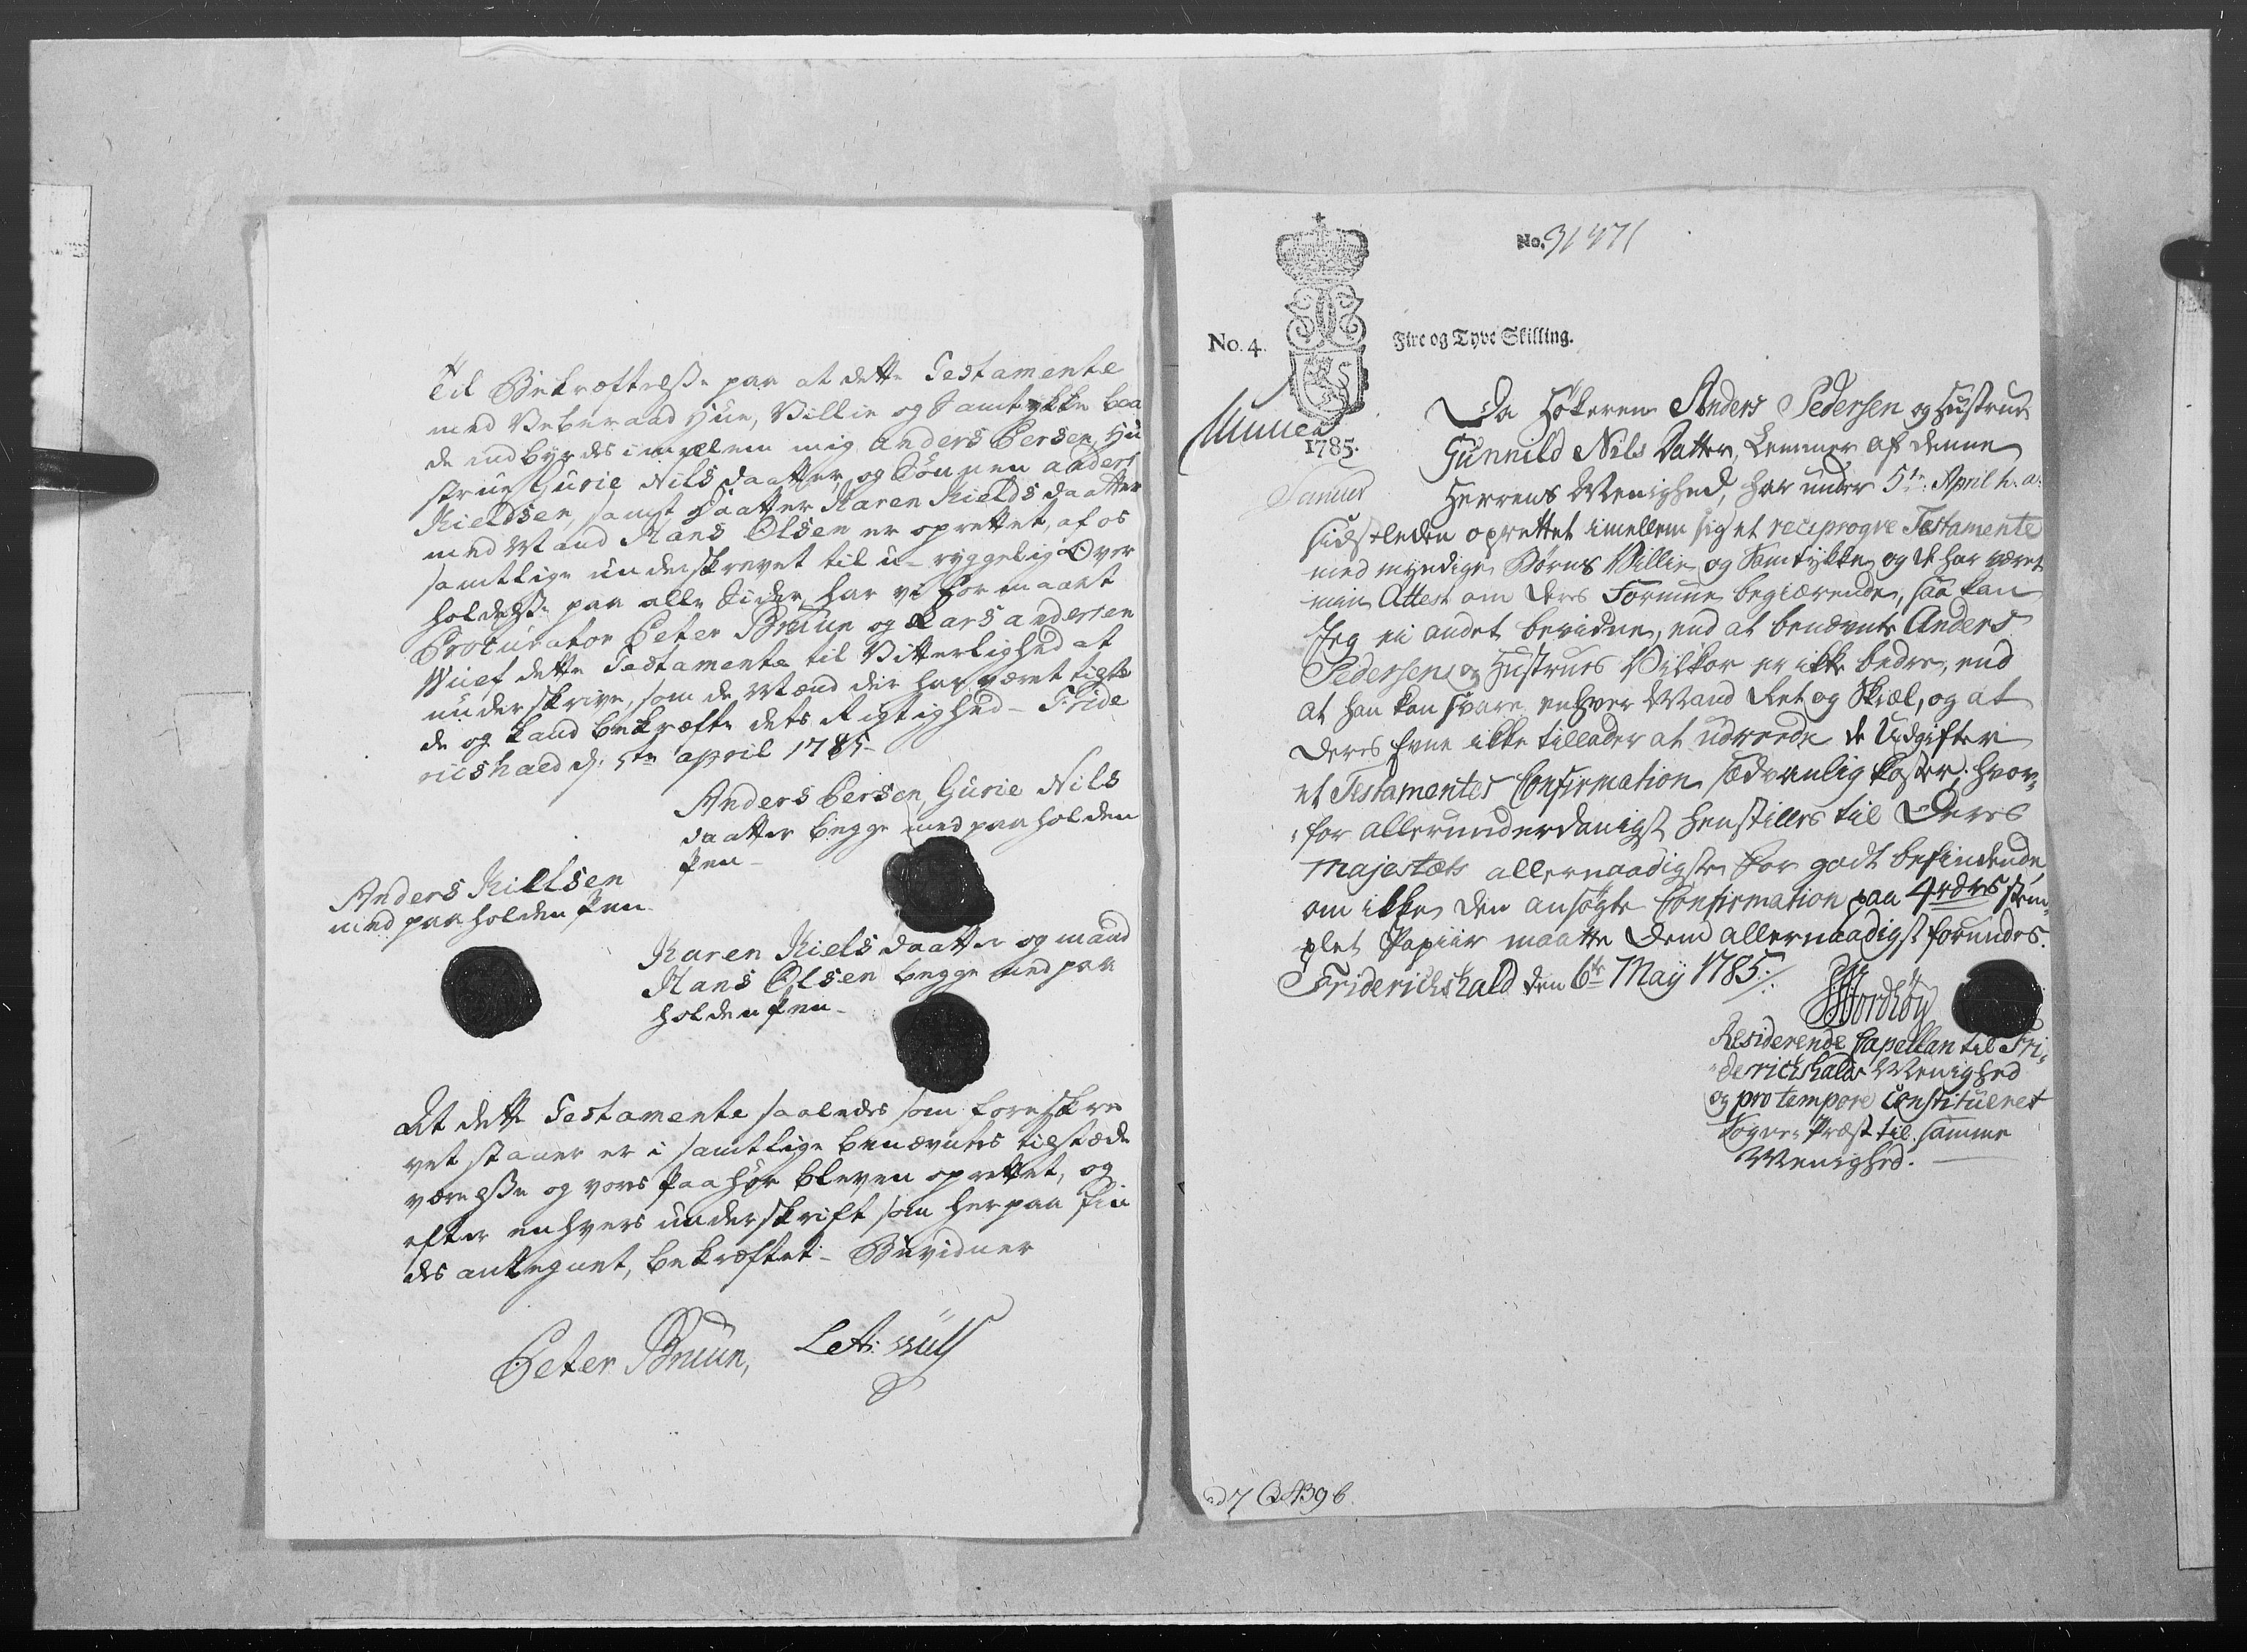 Til Bekræftelsse paa at dette Testamente
med Velberaad Hue, Villie og Samtykke baa
de indbyrdes imælem mig Anders Persen, Hu
strue Gurie Nils daatter, og Sønnen Anders
Kieldsen, samt Daatter Karen Kields daatter
med Mand Hans Olsen er oprettet, af os
samtlige underskrevet til u-ryggelig Over
holdelsse paa alle Sider, har vi formaaet
Procurator Peter Bruun og Lars Andersen
Wulf dette Testamente til Vitterlighed at
underskrive, som de Mænd der har været tilstæ
de og kand bekræfte dets Rigtighed - Fride
richshald d. 5te april 1785-
Anders Persen Gurie Nils
daatter begge med paaholden
Pen-
Anders Kieldsen
med paaholden Pen
Karen Kiels daatter og mand
Hans Olsen begge med paa
holden Pen-
At dette Testamente saaledes som foreskre
vet staaer er i samtlige benævntes tilstæde
værelsse og vores Paahør bleven oprettet, og
efter enhvers underskrift som herpaa fin
des antegnet, bekræftet - Bevidner
Peter Bruun, L: A: Wulf
No. 31471
No. 4. Fire og Tyve Skilling.
1785.
Da Høkeren Anders Pedersen og Hustrue
Gunnild Nils Datter, Lemmer af denne
Herrens Menighed, har under 5te April h. a.
sidstleden oprettet imellem sig et reciproqve Testamente
med myndige Børns Villie og Samtykke, og de har været
min Attest om deres Formue begiærende, saa kan
Jeg ei andet bevidne, end at benævnte Anders
Pedersens og Hustrues Vilkor er ikke bedre, end
at han kan svare enhver Mand Ret og Skiæl, og at
deres Evne ikke tillader at udreede de Udgifter
et Testamentes Confirmation sædvanlig koster; hvor-
for allerunderdanigst henstilles til Deres
Majestæts allernaadigste for godt befindende,
om ikke den ansøgte Confirmation paa 4rdrs stem-
plet Papiir maatte dem allernaadigst forundes.
Friderichshald den 6te May 1785./.
Residerende Capellan til Fri-
derichshalds Menighed
og pro tempore Constitueret
Sogne-Præst til samme
Menighed.